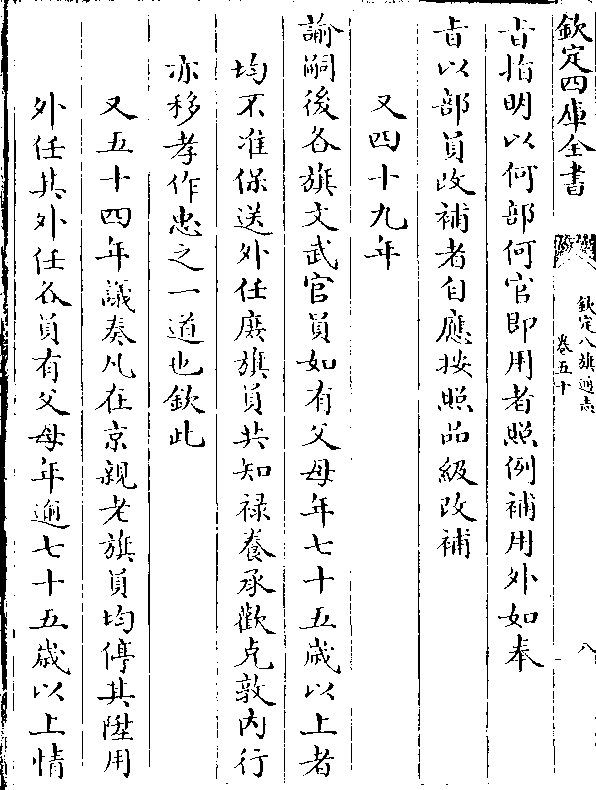 欽定四庫全書
欽定八旗通志
卷五十
八
旨指明以何部何官即用者照例補用外如奉
旨以部員改補者自應按照品級改補
又四十九年
諭嗣後各旗文武官員如有父母年七十五歲以上者
均不准保送外任庶旗員共知祿養承歡克敦內行
亦移孝作忠之一道也欽此
又五十四年議奏凡在京親老旗員均停其陞用
外任其外任各員有父母年逾七十五歲以上情